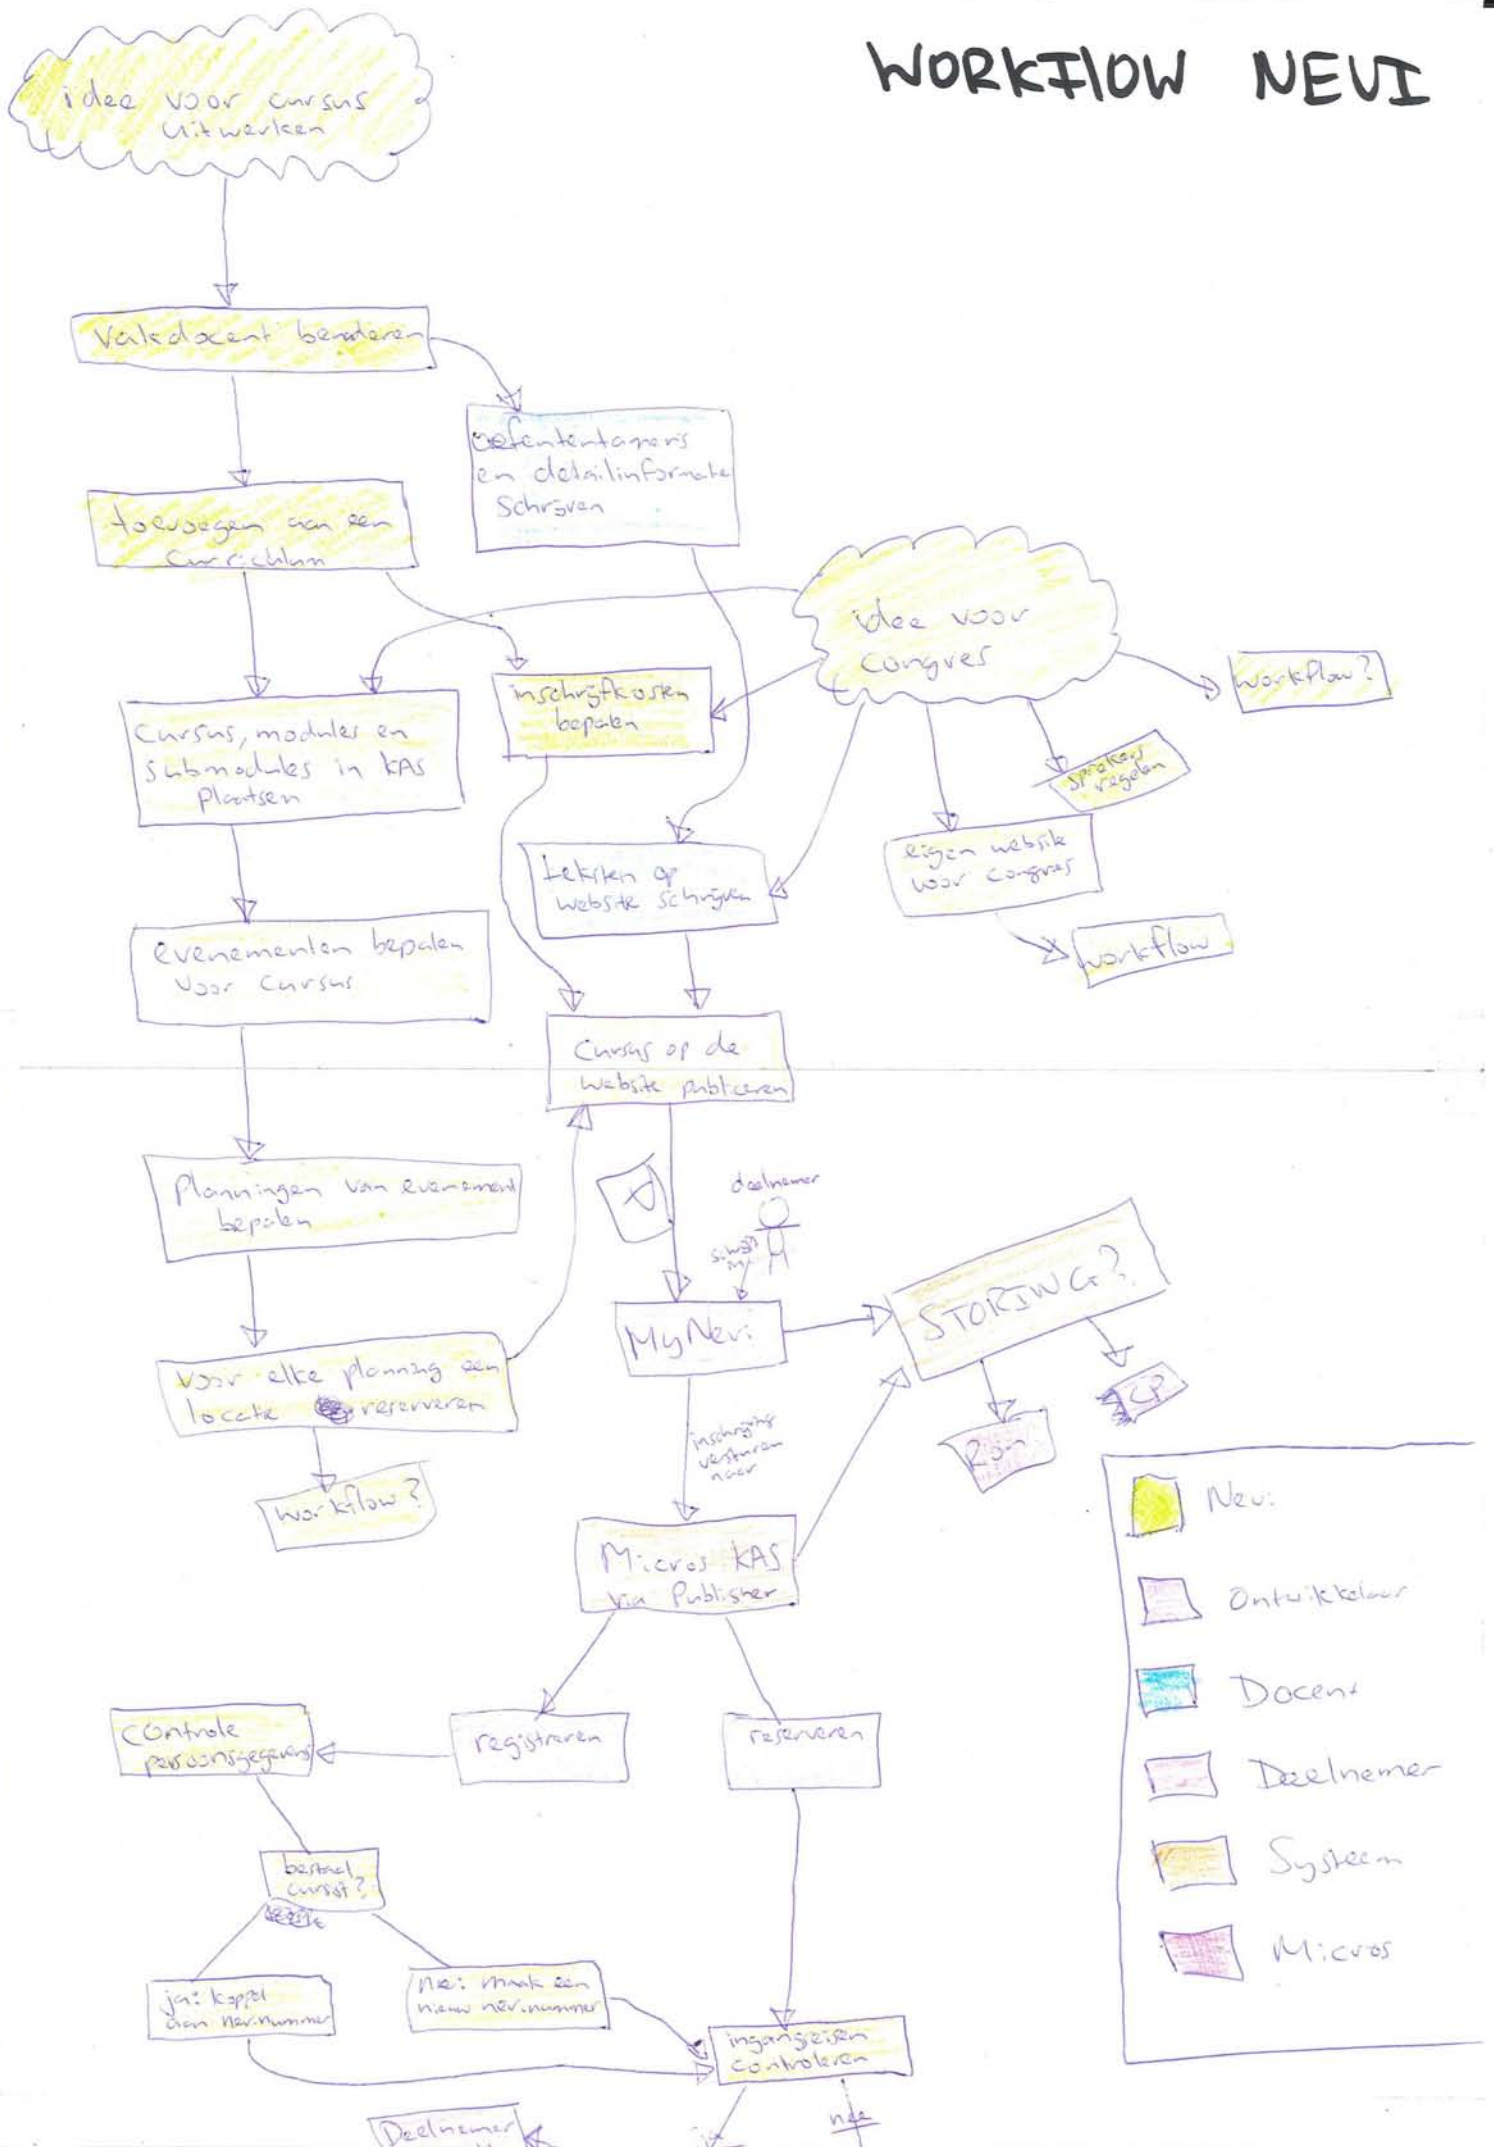 WORKFlOW NEVI
idee voor cursus
uitwerken
Vakdocent benaderen
oefententamens
en detailinformatie
schrijven
toevoegen aan een
Curricilum
idee voor
congres
workflow?
inschrijfkosten
bepalen
sprekers
regelen
Cursus, modules en
submodules in KAS
plaatsen
eigen website
voor congres
teksten op
website schrijven
workflow
evenementen bepalen
voor cursus
Cursus op de
website publiceren
Planningen van evenement
bepalen
deelnemer
schrijft
in
STORING?
MyNevi
voor elke planning een
locatie reserveren
CP
Rijn
inschrijving
versturen
naar
workflow?
Micros KAS
via Publisher
Nevi
Ontwikkelaar
Docent
Deelnemer
Systeem
Micros
controle
persoonsgegevens
registreren
reserveren
bestaat
cursist?
ja: koppel
aan nevinummer
nee: maak een
nieuw nevinummer
ingangseisen
controleren
Deelnemer
ja
nee